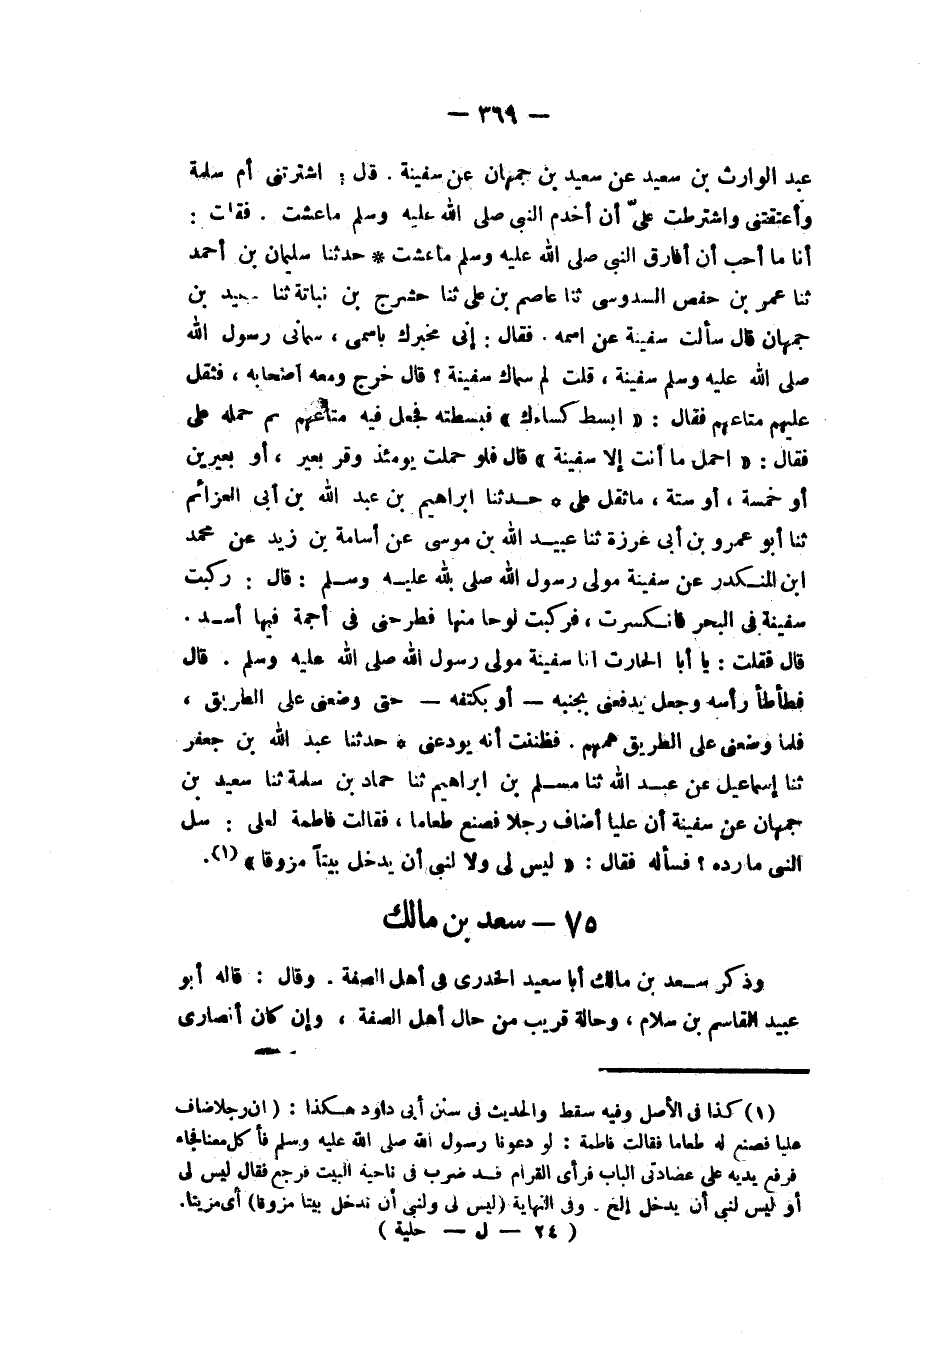 — ٣٦٩ —
عبد الوارث بن سعيد عن سعيد بن جمهان عن سفينة . قال : اشترتنى أم سلمة
وأعتقتنى واشترطت علىّ أن أخدم النبى صلى الله عليه وسلم ماعشت . فقلت :
أنا ما أحب أن أفارق النبى صلى الله عليه وسلم ماعشت * حدثنا سليمان بن أحمد
ثنا عمر بن حفص السدوسى ثنا عاصم بن على ثنا حشرج بن نباتة ثنا سعيد بن
جمهان قال سألت سفينة عن اسمه . فقال : إنى مخبرك باسمى ، سمانى رسول الله
صلى الله عليه وسلم سفينة ، قلت لم سماك سفينة ؟ قال خرج ومعه أصحابه ، فثقل
عليهم متاعهم فقال : « ابسط كساءك » فبسطته فجعل فيه متاعهم ثم حمله على
فقال : « احمل ما أنت إلا سفينة » قال فلو حملت يومئذ وقر بعير ، أو بعيرين
أو خمسة ، أو ستة ، ماثقل على * حـدثنا ابراهيم بن عبد الله بن أبى العزائم
ثنا أبو عمرو بن أبى غرزة ثنا عبيـد الله بن موسى عن أسامة بن زيد عن محمد
ابن المنـكدر عن سفينة مولى رسول الله صلى الله عليـه وسـلم : قال : ركبت
سفينة فى البحر فانـكسرت ، فركبت لوحا منها فطرحنى فى أجمة فيها أسـد .
قال فقلت : يا أبا الحارث انا سفينة مولى رسول الله صلى الله عليه وسلم . قال
فطأطأ رأسه وجعل يدفعنى بجنبه — أو بكتفه — حتى وضعنى على الطريق ،
فلما وضعنى على الطريق همهم . فظننت أنه يودعنى * حدثنا عبد الله بن جعفر
ثنا إسماعيل عن عبـد الله ثنا مسـلم بن ابراهيم ثنا حماد بن سلمة ثنا سعيد بن
جمهان عن سفينة أن عليا أضاف رجلا فصنع طعاما ، فقالت فاطمة لعلى : سل
النبى مارده ؟ فسأله فقال : « ليس لى ولا لنبى أن يدخل بيتاً مزوقا » (١).
٧٥ — سعد بن مالك
وذكر سـعد بن مالك أبا سعيد الخدرى فى أهل الصفة . وقال : قاله أبو
عبيد القاسم بن سلام ، وحالة قريب من حال أهل الصفة ، وإن كان أنصارى
(١) كذا فى الأصل وفيه سقط والحديث فى سنن أبى داود هـكذا : (ان رجلا ضاف
عليا فصنع له طعاما فقالت فاطمة : لو دعونا رسول الله صلى الله عليه وسلم فأكل معنا فجاء
فرفع يديه على عضادتى الباب فرأى القرام قـد ضرب فى ناحية البيت فرجع فقال ليس لى
أو ليس لنبى أن يدخل إلخ . وفى النهاية (ليس لى ولنبى أن ندخل بيتا مزوقا) أى مزينا.
( ٢٤ — ل — حلية )